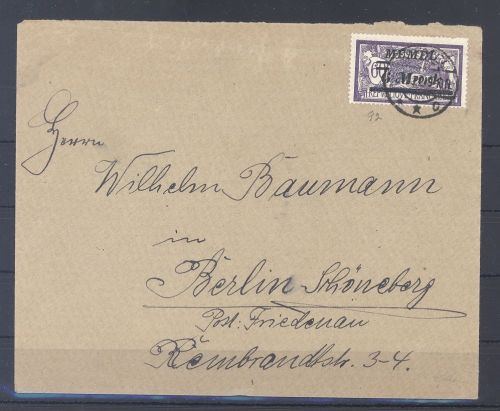 MEMEL
Mark
92
Herrn
Wilhelm Baumann
in
Berlin Schöneberg
Post: Friedenau
Rembrandtstr. 3-4.